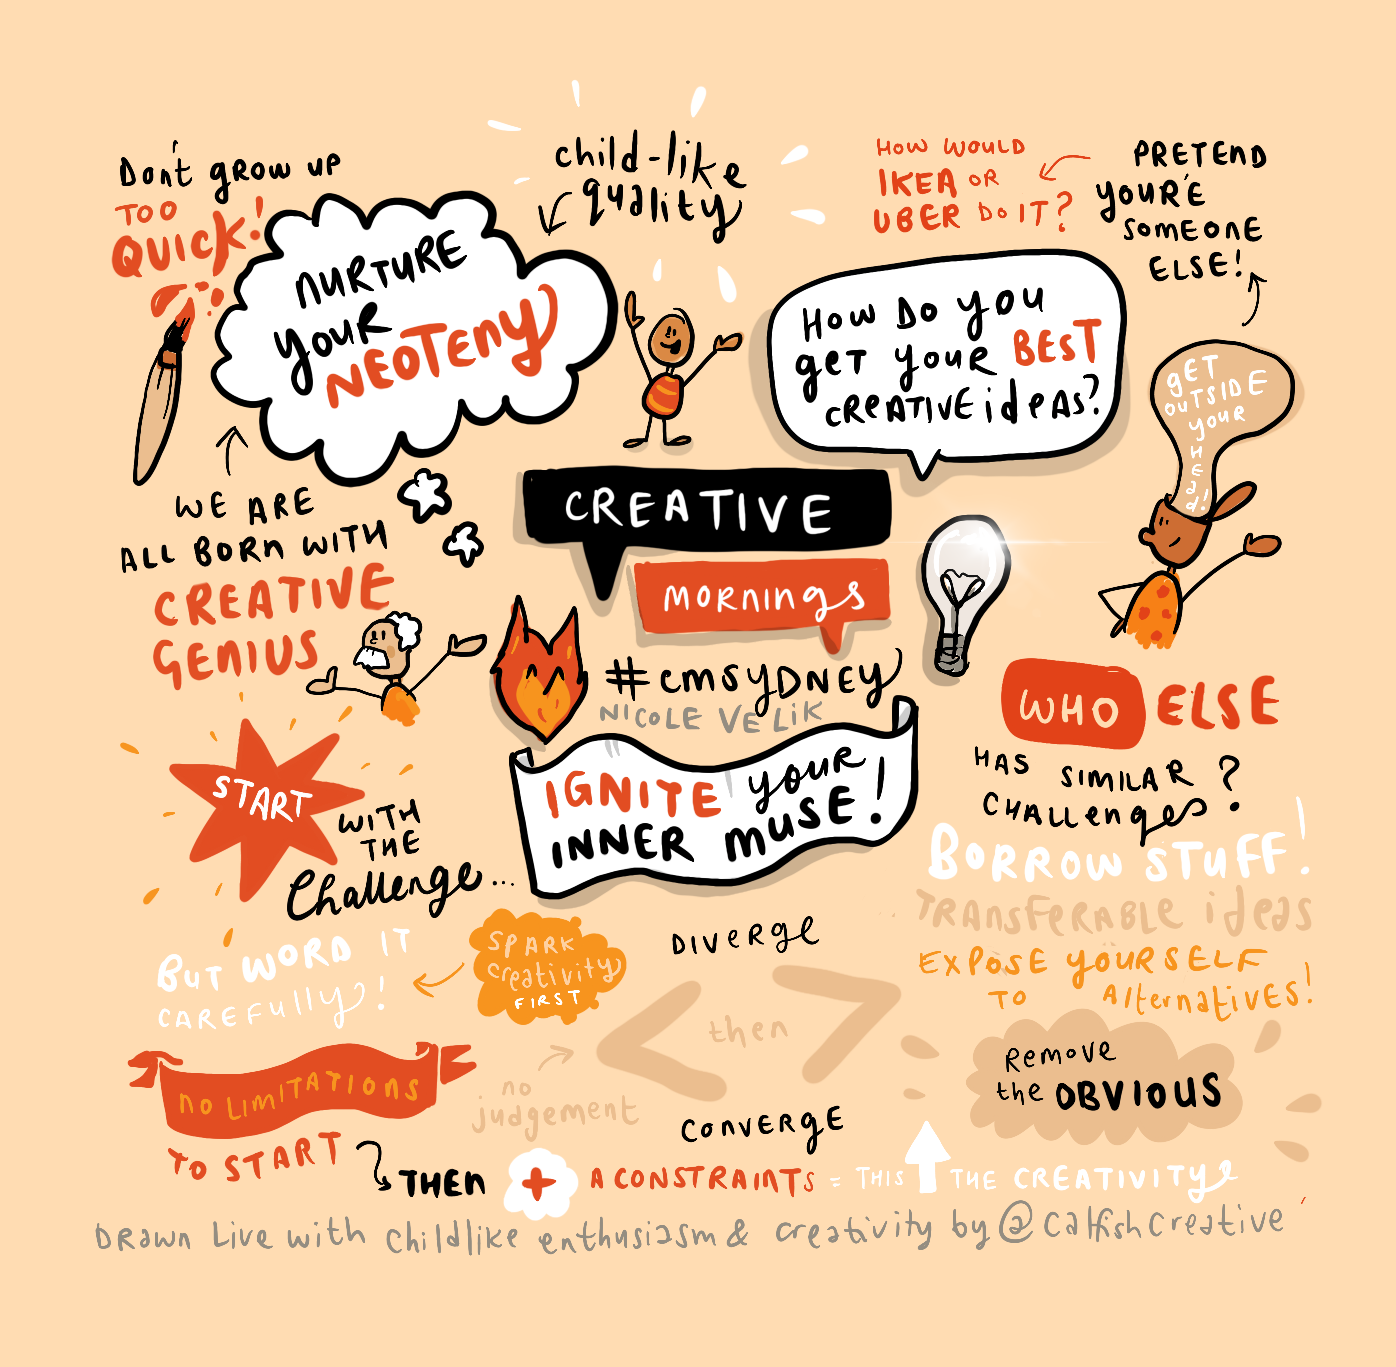 Don't grow up
too
quick!
child-like
quality
How would
IKEA or
Uber do it?
Pretend
you'r'e
someone
else!
Nurture
your
Neoteny
How do you
get your best
creative ideas?
get
outside
your
head!
We are
all born with
creative
genius
Creative
Mornings
#cmsydney
Nicole Velik
Ignite your
inner muse!
Who else
has similar
challenges?
Borrow stuff!
Transferable ideas
Expose yourself
to alternatives!
Start
with
the
Challenge...
But word it
carefully!
Spark
creativity
first
Diverge
then
Converge
no
judgement
Remove
the obvious
No limitations
to start
then + a constraints = this the creativity
Drawn live with childlike enthusiasm & creativity by @catfishcreative